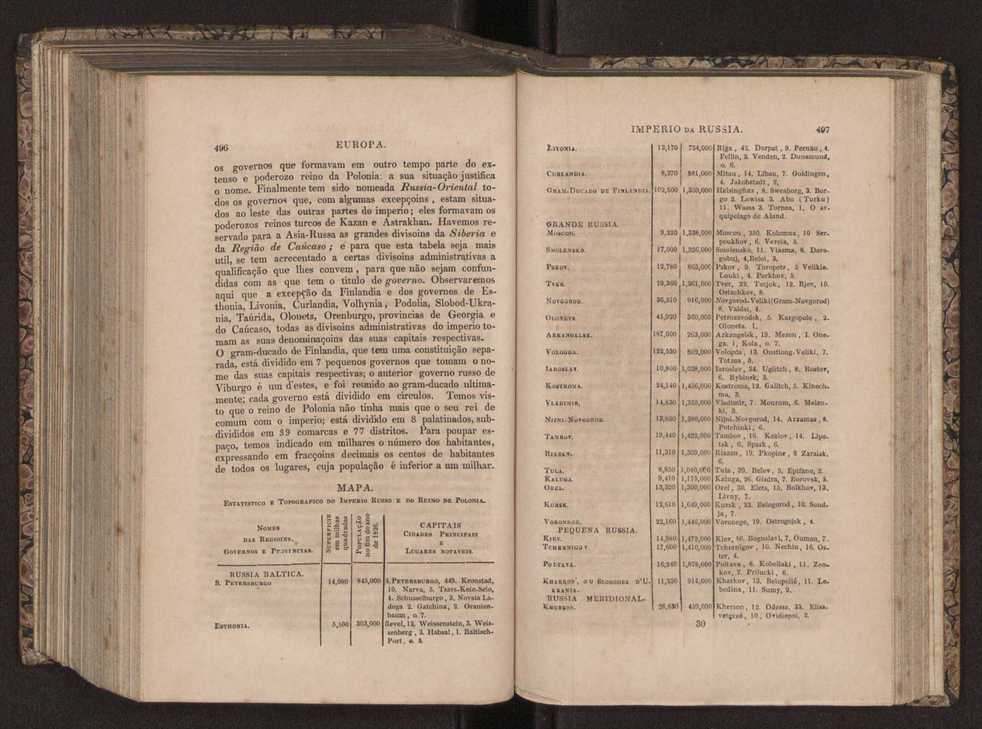 496 EUROPA.
os governos que formavam em outro tempo parte do ex-
tenso e poderozo reino da Polonia: a sua situação justifica
o nome. Finalmente tem sido nomeada Russia-Oriental to-
dos os governos que, com algumas excepçoins, estam situa-
dos ao leste das outras partes do imperio; eles formavam os
poderozos reinos turcos de Kazan e Astrakhan. Havemos re-
servado para a Asia-Russa as grandes divisoins da Siberia e
da Região de Caúcaso; e para que esta tabela seja mais
util, se tem acrecentado a certas divisoins administrativas a
qualificação que lhes convem, para que não sejam confun-
didas com as que tem o titulo de governo. Observaremos
aqui que a excepção da Finlandia e dos governos de Es-
thonia, Livonia, Curlandia, Volhynia, Podolia, Slobod-Ukra-
nia, Taúrida, Olonets, Orenburgo, provincias de Georgia e
do Caúcaso, todas as divisoins administrativas do imperio to-
mam as suas denominaçoins das suas capitais respectivas.
O gram-ducado de Finlandia, que tem uma constituição sepa-
rada, está dividido em 7 pequenos governos que tomam o no-
me das suas capitais respectivas; o anterior governo russo de
Viburgo é um d'estes, e foi reunido ao gram-ducado ultima-
mente; cada governo está dividido em circulos. Temos vis-
to que o reino de Polonia não tinha mais que o seu rei de
comum com o imperio; está dividido em 8 palatinados, sub-
divididos em 39 comarcas e 77 distritos. Para poupar es-
paço, temos indicado em milhares o número dos habitantes,
expressando em fracçoins decimais os centos de habitantes
de todos os lugares, cuja população é inferior a um milhar.
MAPA.
Estatistico e Topografico do Imperio Russo e do Reino de Polonia.
Nomes
das Regioins,
Governos e Provincias.
Superficie
em milhas
quadradas
População
no fim do ano
de 1826.
CAPITAIS
Cidades Principais
e
Lugares notaveis.
RUSSIA BALTICA.
S. Petersburgo 14,000 845,000 S. Petersburgo, 449. Kronstad,
10. Narva, 3. Tzars-Koie-Selo,
4. Schusselburgo, 3. Novaia La-
doga 2. Gatchina, 2. Oranien-
baum, o. 7.
Esthonia. 5,100 303,000 Revel, 13. Weissenstein, 3. Weis-
senberg, 3. Habsal, 1. Baltisch-
Port, o. 3.
IMPERIO da RUSSIA. 497
Livonia. 13,170 754,000 Riga, 42. Dorpat, 9. Pernau, 4.
Fellin, 3. Venden, 2. Dunamund,
o. 6.
Curlandia. 8,270 581,000 Mitau, 14. Libau, 7. Goldingen,
4. Jakobstadt, 2,
Gram-Ducado de Finlandia. 102,500 1,350,000 Helsingfors, 8. Sweaborg, 3. Bor-
go 2. Lowisa 3. Abo (Turku)
11. Wassa 3. Tornea, 1, O ar-
quipelago de Aland.
GRANDE RUSSIA.
Moscou. 9,330 1,338,000 Moscou, 250. Kolomna, 10 Ser-
poukhov, 6. Vereia, 5.
Smolensko. 17,000 1,326,000 Smolensko, 11. Viasma, 8. Doro-
gobuj, 4, Beloi, 3.
Pskov. 12,780 863,000 Pskov, 9. Toropetz, 5 Velikia-
Louki, 4. Porkhov, 3.
Tver. 19,360 1,261,000 Tver, 22. Torjok, 12. Rjev, 10.
Ostachkov, 8.
Novgorod. 36,310 916,000 Novgorod-Veliki (Gram-Novgorod)
8, Valdai, 4.
Olonets. 45,920 360,000 Petrozavodsk, 5. Kargopole, 2.
Olonets. 1,
Arkangelsk. 187,000 263,000 Arkangelsk, 19. Mezen, 1. One-
ga. 1, Kola, o. 7.
Vologda. 122,530 802,000 Vologda, 13. Oustioug-Veliki, 7.
Totma, 3.
Iaroslav. 10,800 1,038,000 Iaroslav, 24. Uglitch, 6. Rostov,
6. Rybinsk, 3.
Kostroma. 24,140 1,456,000 Kostroma, 12. Galitch, 5. Kinech-
ma, 3.
Vladimir. 14,430 1,335,000 Vladimir, 7. Mourom, 6. Melen-
ki, 3.
Nijni-Novgorod. 13,850 1,386,000 Nijni-Novgorod, 14. Arzamas, 8.
Potchinki, 6.
Tambov. 19,440 1,423,000 Tambov, 16. Kozlov, 14. Lipe-
tsk, 6, Spask, 6.
Riazan. 11,310 1,309,000 Riazan, 19. Pkopine, 8 Zaraisk,
6.
Tula. 8,850 1,040,000 Tula, 39. Belev, 5. Epifane, 2.
Kaluga. 9,410 1,175,000 Kaluga, 26. Gisdra, 7. Borovsk, 5.
Orel. 13,320 1,300,000 Orel, 30. Elets, 15. Bolkhov, 13.
Livny, 7.
Kursk. 12,610 1,649,000 Kursk, 23. Belogorod, 10. Soud-
ja, 7.
Voronege. 22,160 1,446,000 Voronege, 19. Ostrogojsk, 4.
PEQUENA RUSSIA.
Kiev. 14,960 1,479,000 Kiev, 56. Boguslavl, 7. Ouman, 7.
Tchernigov. 17,600 1,410,000 Tchernigov, 10. Nechin, 16. Os-
ter, 4.
Poltava. 16,240 1,878,000 Poltava, 8. Kobeliaki, 11. Zen-
kov, 7. Prilucki, 6.
Kharkov, ou Slobodes d'U- 11,320 914,000 Kharkov, 13. Belopolié, 11. Le-
krania. bedina, 11. Sumy, 9.
RUSSIA MERIDIONAL.
Kherson. 26,630 459,000 Kherson, 12. Odessa, 33. Elisa-
vetgrad, 10, Ovidiopol, 2.
30